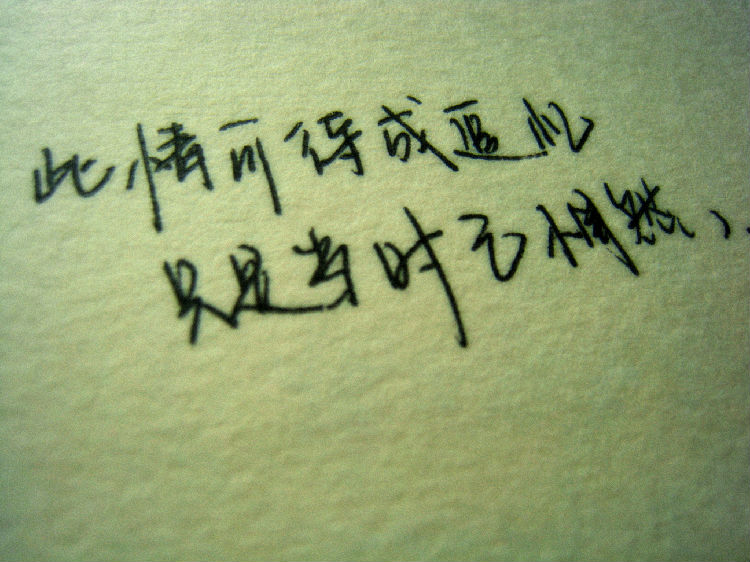 此情可待成追忆
只是当时已惘然、、